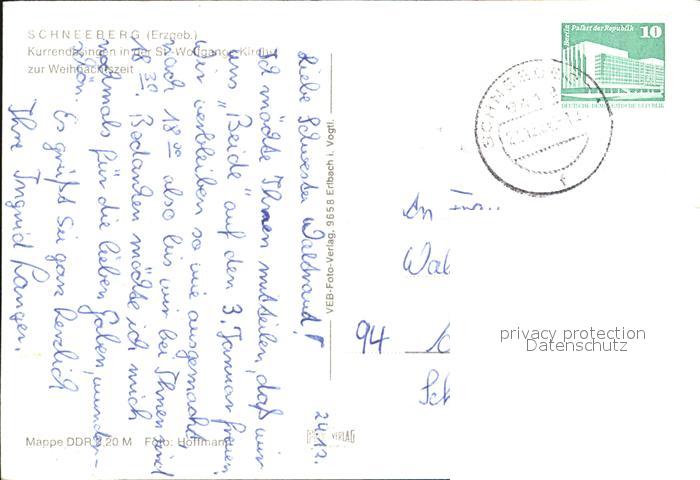 SCHNEEBERG (Erzgeb.)
Kurrendesingen in der St.-Wolfgangs-Kirche
zur Weihnachtszeit
24.12.
Liebe Schwester Waltraud!
Ich möchte Ihnen mitteilen, daß wir
uns "Beide" auf den 3. Januar freuen.
Wir verbleiben so wie ausgemacht
nach 18.00 also bis wir bei Ihnen sind
18.30. Bedanken möchte ich mich
nochmals für die lieben Gaben, wunder-
schön. Es grüßt Sie ganz herzlich
Ihre Ingrid Langer.
Mappe DDR 2,20 M Foto: Hoffmann
VEB-Foto-Verlag, 9658 Erlbach i. Vogtl.
VERLAG
Berlin Palast der Republik
10
DEUTSCHE DEMOKRATISCHE REPUBLIK
An
94
privacy protection
Datenschutz